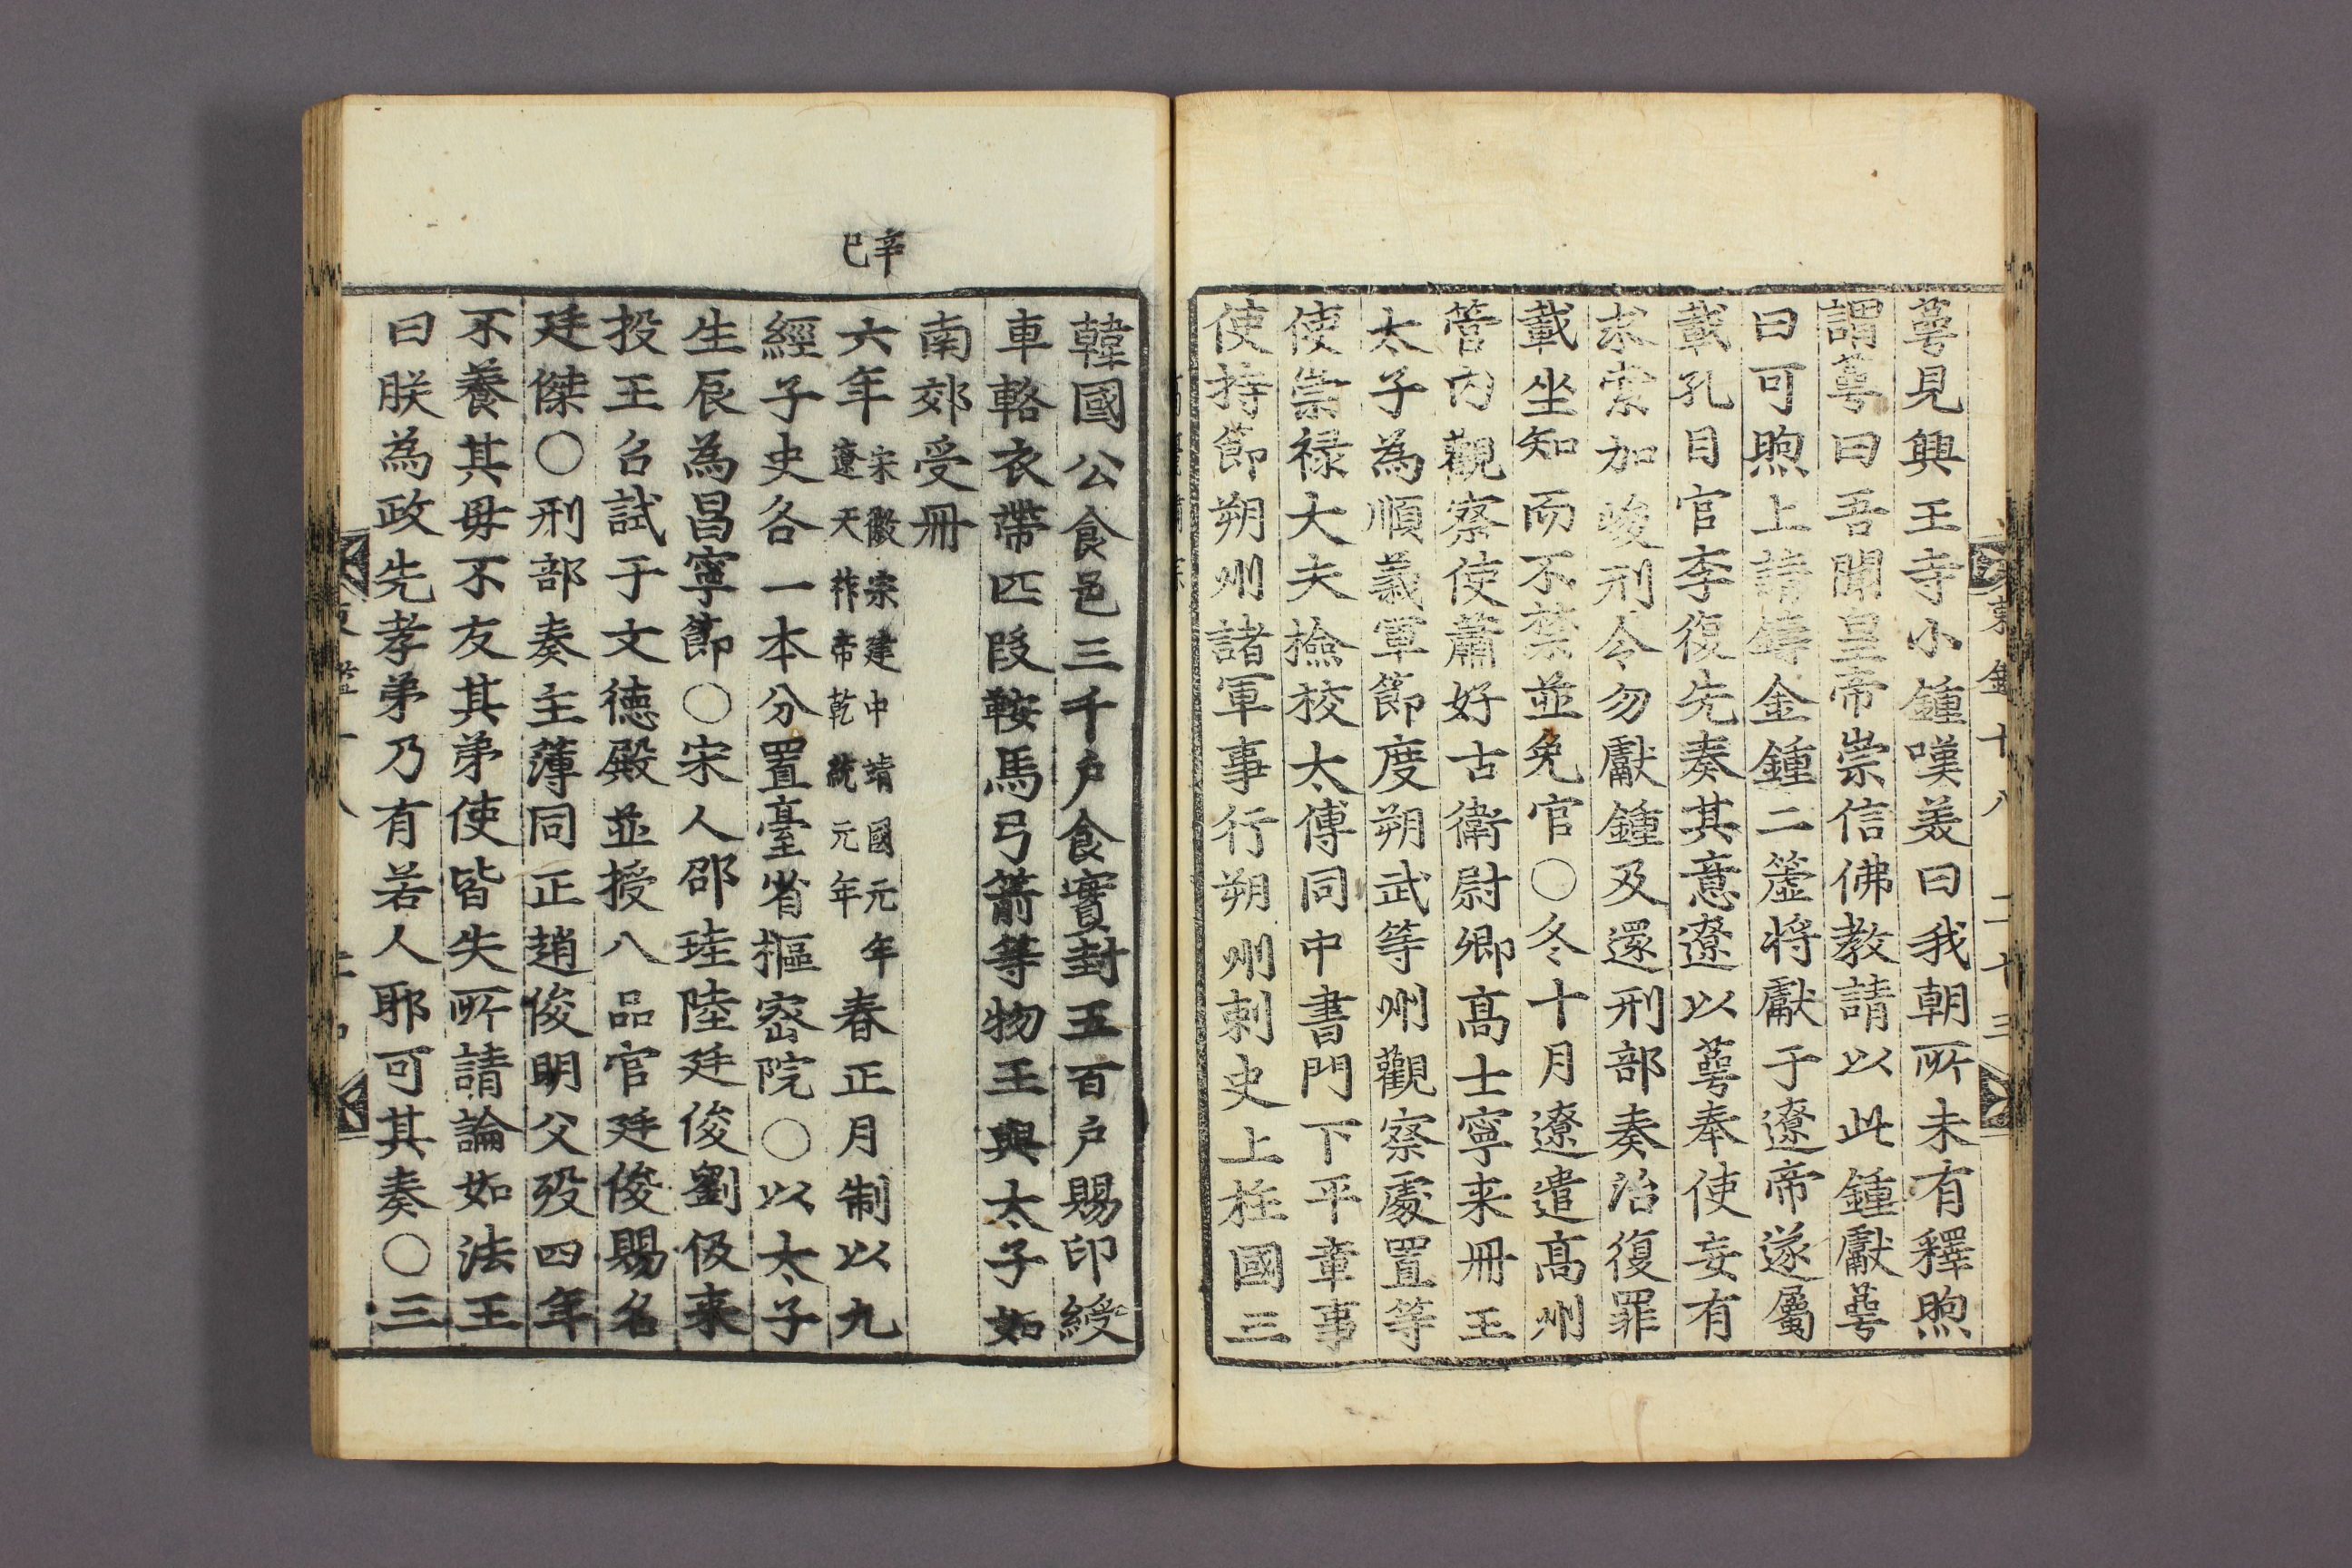 蕚見興王寺小鍾嘆美曰我朝所未有釋煦
謂蕚曰吾聞皇帝崇信佛教請以此鍾獻蕚
曰可煦上請鑄金鍾二簴将獻于遼帝遂屬
載孔目官李復先奏其意遼以蕚奉使妄有
求索加峻刑令勿獻鍾及還刑部奏治復罪
載坐知而不禁並免官○冬十月遼遣高州
管内觀察使蕭好古衛尉卿高士寧来冊王
太子為順義軍節度朔武等州觀察處置等
使崇禄大夫撿校太傅同中書門下平章事
使持節朔州諸軍事行朔州刺史上柱國三
韓國公食邑三千户食實封五百户賜印綬
車輅衣帶匹段鞍馬弓箭等物王與太子如
南郊受冊
辛巳
六年宋徽宗建中靖國元年遼天祚帝乾統元年春正月制以九
經子史各一本分置臺省樞密院○以太子
生辰為昌寧節○宋人邵珪陸廷俊劉伋来
投王召試于文徳殿並授八品官廷俊賜名
廷傑○刑部奏主薄同正趙俊明父殁四年
不養其毋不友其弟使皆失所請論如法王
曰朕為政先孝弟乃有若人耶可其奏○三